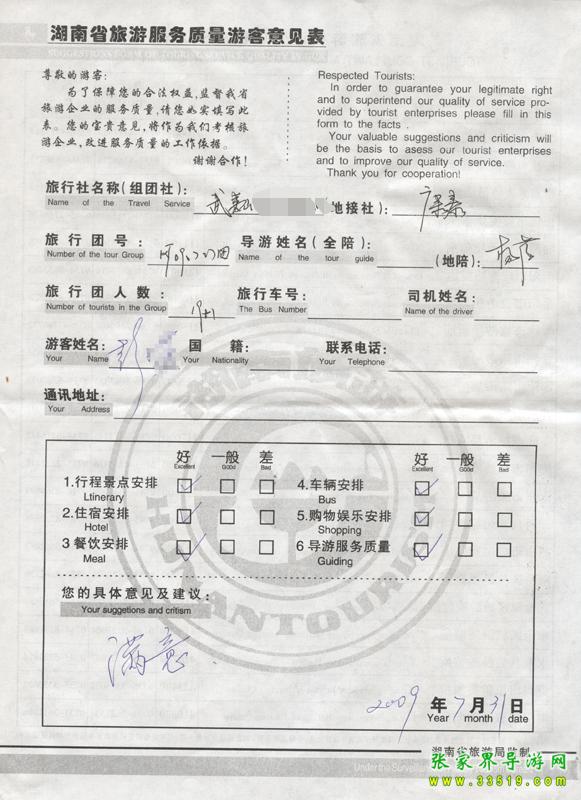 湖南省旅游服务质量游客意见表
尊敬的游客:
为了保障您的合法权益,监督我省
旅游企业的服务质量,请您如实填写此
表。您的宝贵意见,将作为我们考核旅
游企业,改进服务质量的工作依据。
谢谢合作!
Respected Tourists:
In order to guarantee your legitimate right
and to superintend our quality of service pro-
vided by tourist enterprises please fill in this
form to the facts .
Your valuable suggestions and criticism will
be the basis to asess our tourist enterprises
and to improve our quality of service.
Thank you for cooperation!
旅行社名称(组团社): 地接社):
Name of the Travel Service
旅行团号: 导游姓名(全陪): (地陪):
Number of the tour Group Name of the tour guide
旅行团人数: 19+1 旅行车号: 司机姓名:
Number of tourists in the Group The Bus Number Name of the driver
游客姓名: 彭 国籍: 联系电话:
Your Name Your Nationality Your Telephone
通讯地址:
Your Address
好 一般 差 好 一般 差
Excellent Good Bad Excellent Good Bad
1.行程景点安排 4.车辆安排
Ltinerary Bus
2.住宿安排 5.购物娱乐安排
Hotel Shopping
3 餐饮安排 6 导游服务质量
Meal Guiding
您的具体意见及建议:
Your suggetions and critism
满意
2009 年 7 月 31 日
Year month date
湖南省旅游局监制
Under the Surveil
HUNAN TOURISM
张家界导游网
www.33519.com